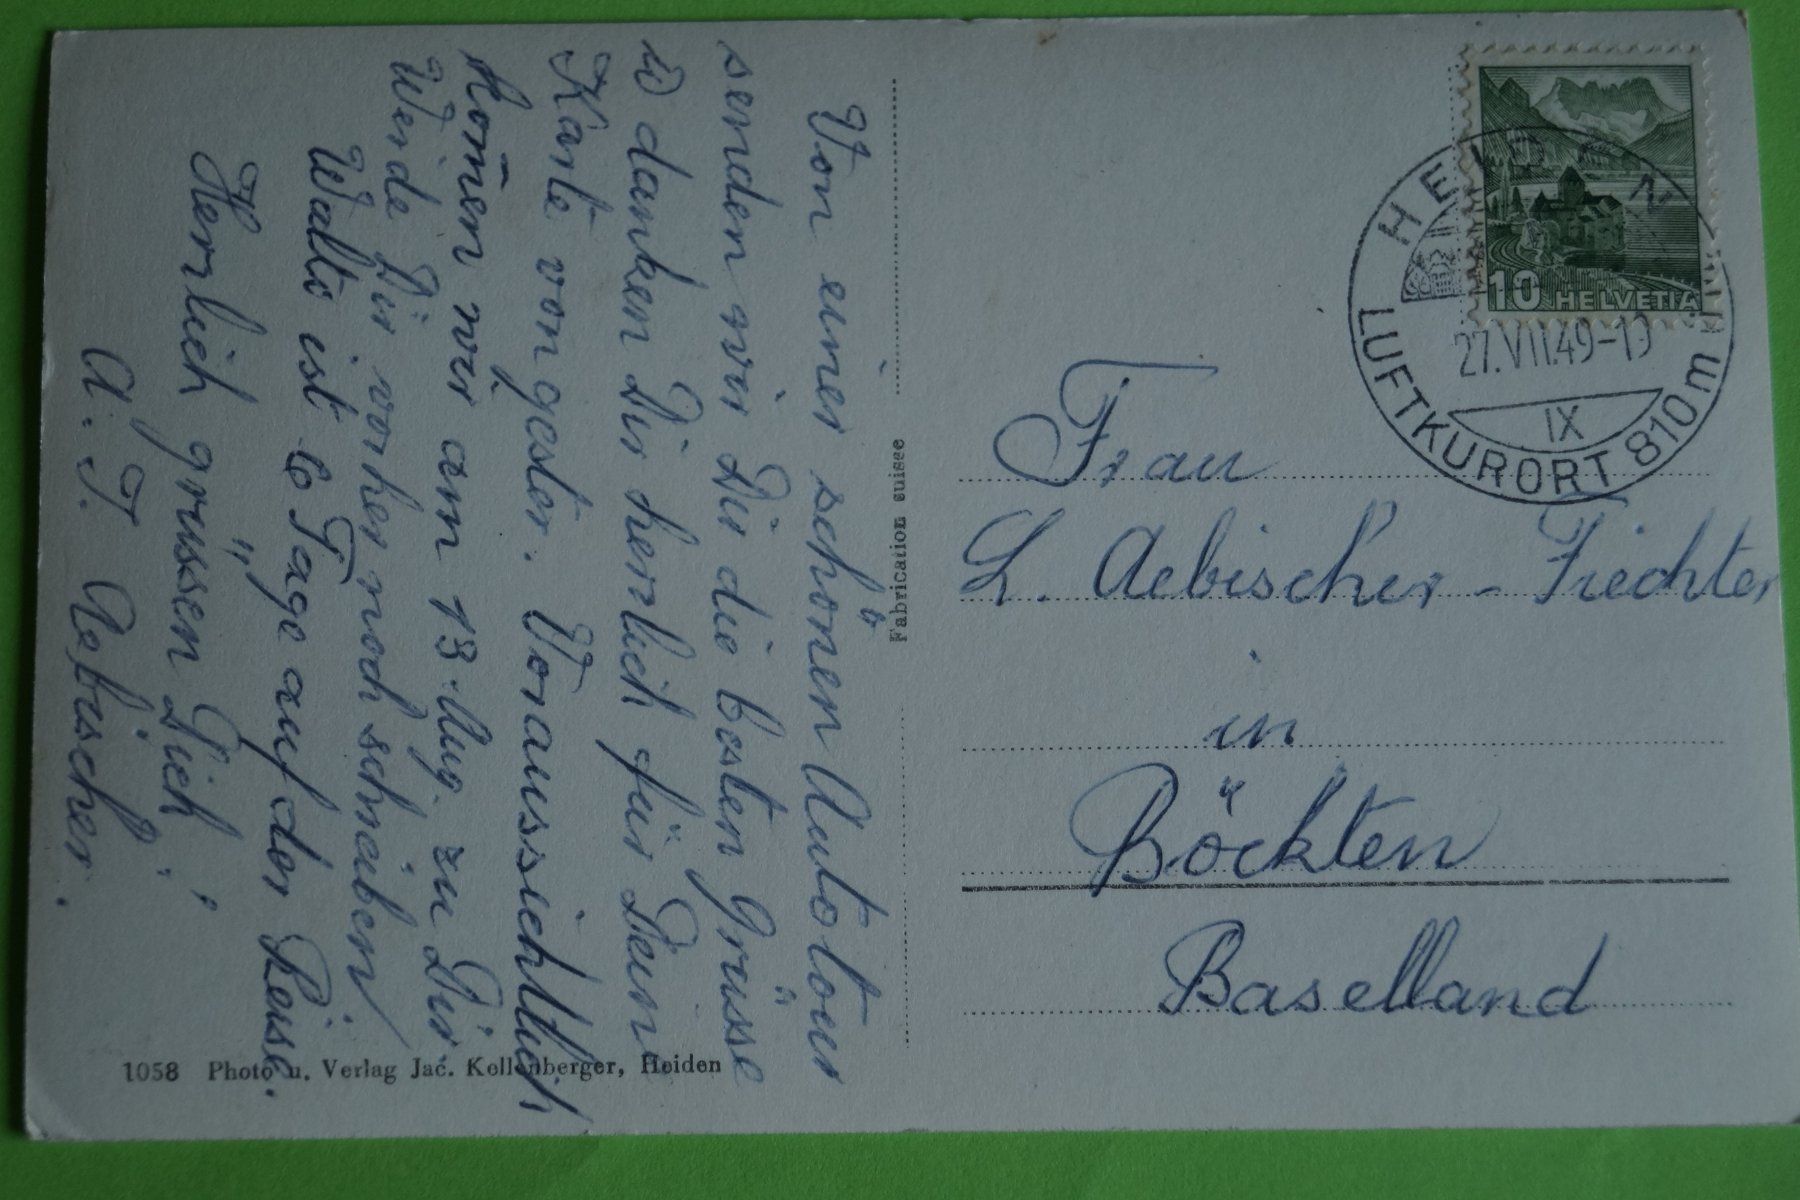 Von einer schönen Autotour
senden wir Dir die besten Grüsse
u danken Dir herzlich für Deine
Karte von gester. Voraussichtlich
kom̄en wir am 13. Aug. zu Dir
Werde Dir vorher noch schreiben.
Walto ist 6 Tage auf der Reise.
Herzlich grüssen Dich,
A. T. Aebischer.
Fabrication suisse
1058 Photo u. Verlag Jac. Kellenberger, Heiden
10 HELVETIA
HEIDEN
27.VII.49-19
IX
LUFTKURORT 810m
Frau
L. Aebischer-Fiechter
in
Böckten
Baselland